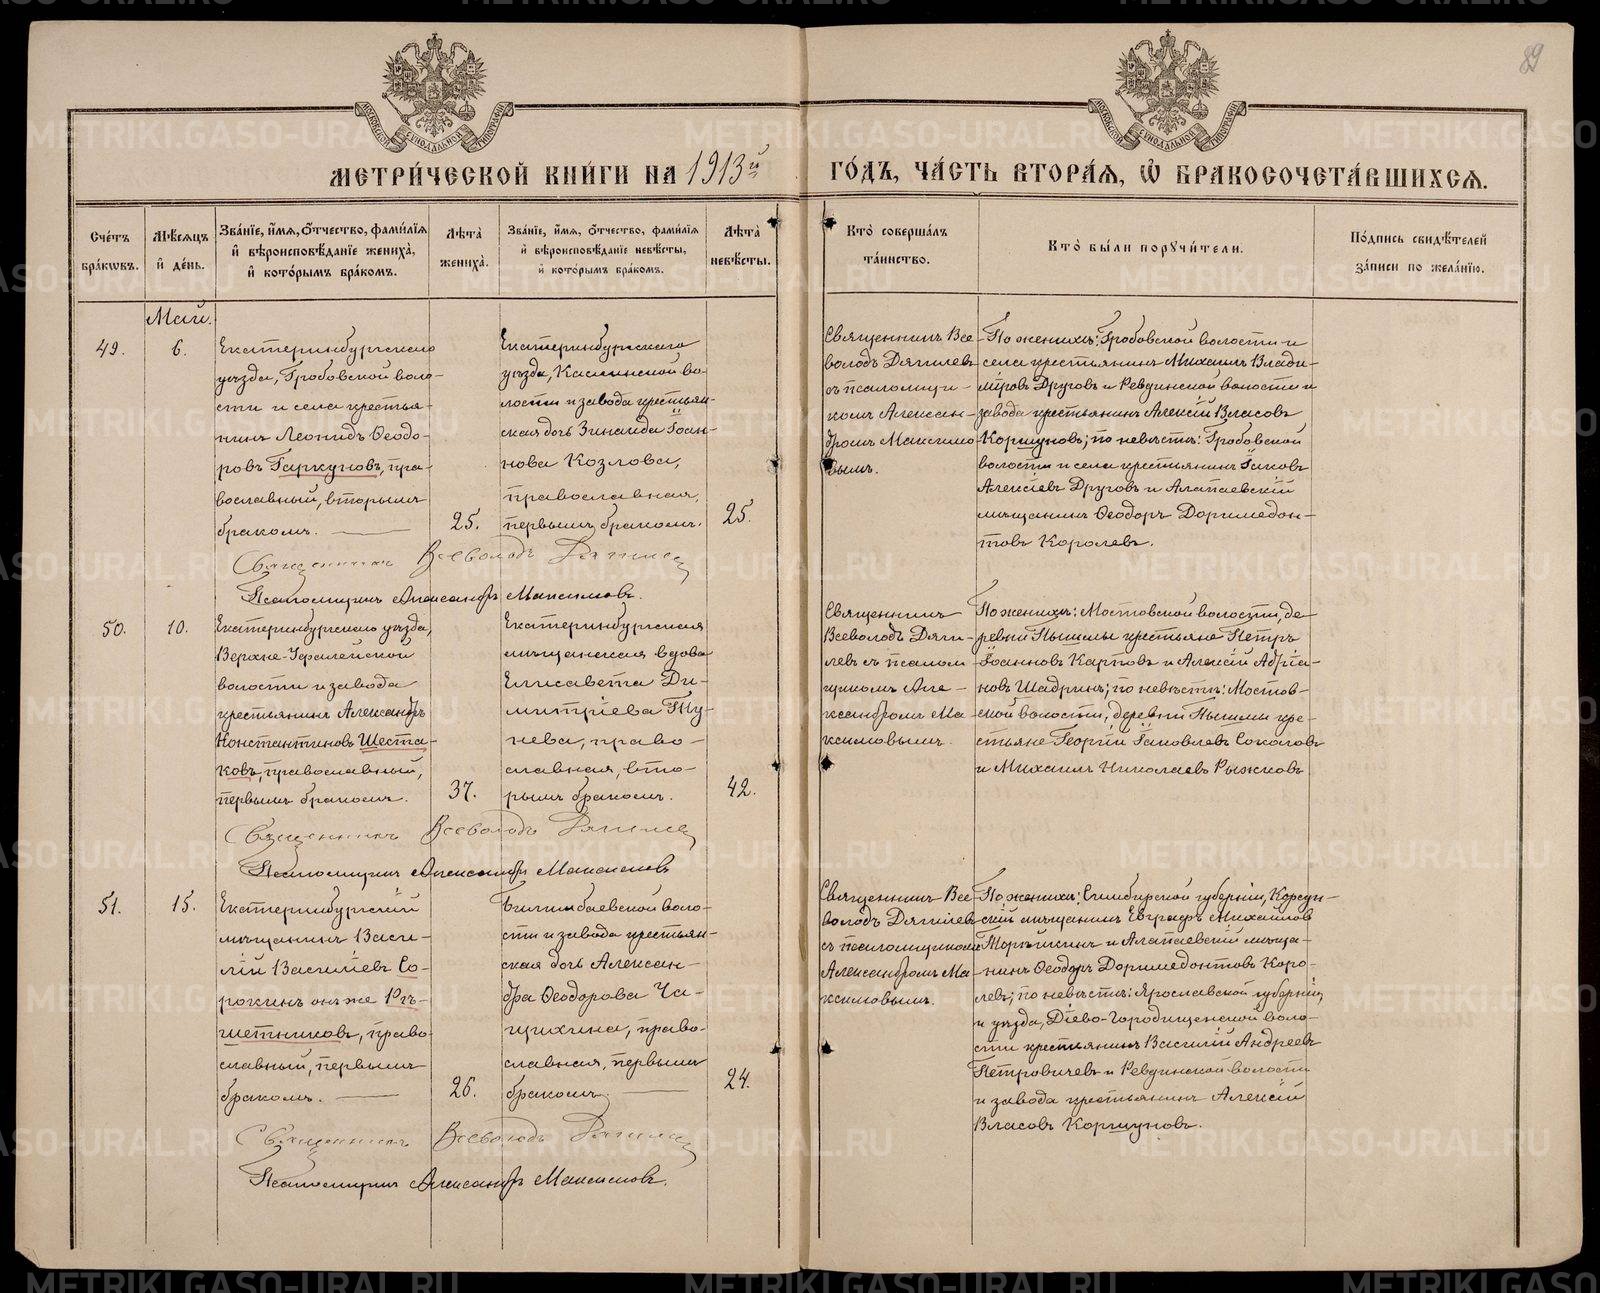 89
МЕТРИ́ЧЕСКОЙ КНИ́ГИ НА 1913й ГО́ДЪ, ЧА́СТЬ ВТОРА́Я, Ѽ БРАКОСОЧЕТА́ВШИХСЯ.
Сче́тъ бра́кѡвъ.
Мѣ́сяцъ и де́нь.
Зва́нїе, и́мя, ѻ́тчество, фами́лїя
и вѣроисповѣ́данїе жениха̀,
и кото́рымъ бра́комъ.
Лѣта̀ жениха̀.
Зва́нїе, и́мя, ѻ́тчество, фами́лїя
и вѣроисповѣ́данїе невѣ́сты,
и кото́рымъ бра́комъ.
Лѣта̀ невѣ́сты.
Кто̀ соверша́лъ
та́инство.
Кто̀ бы́ли порꙋчи́тели.
По́дпись свидѣ́телей
за́писи по жела́нїю.
Май.
49.
6.
Екатеринбургскаго
уѣзда, Гробовской воло-
сти и села крестья-
нинъ Леонидъ Ѳеодо-
ровъ Гаркуновъ, пра-
вославный, вторымъ
бракомъ.
25.
Екатеринбургскаго
уѣзда, Каслинской во-
лости и завода крестьян-
ская дочь Зинаида Іоан-
нова Козлова,
православная,
первымъ бракомъ.
25.
Священникъ Все-
володъ Дягилевъ
съ псаломщи-
комъ Алексан-
дромъ Максимо-
вымъ.
По женихѣ: Гробовской волости и
села крестьянинъ Михаилъ Влади-
міровъ Друговъ и Ревдинской волости и
завода крестьянинъ Алексій Власовъ
Коршуновъ; по невѣстѣ: Гробовской
волости и села крестьянинъ Іаковъ
Алексіевъ Друговъ и Алапаевскій
мѣщанинъ Ѳеодоръ Доримедон-
товъ Королевъ.
Священникъ Всеволодъ Дягилевъ
Псаломщикъ Александръ Максимовъ.
50.
10.
Екатеринбургскаго уѣзда,
Верхне-Уфалейской
волости и завода
крестьянинъ Александръ
Константиновъ Шеста-
ковъ, православный,
первымъ бракомъ.
37.
Екатеринбургская
мѣщанская вдова
Елисавета Ди-
митріева Гну-
нева, право-
славная, вто-
рымъ бракомъ.
42.
Священникъ
Всеволодъ Дяги-
левъ съ псалом
щикомъ Але-
ксандромъ Ма-
ксимовымъ.
По женихѣ: Мостовской волости, де-
ревни Пышмы крестьяне Петръ
Іоанновъ Карповъ и Алексій Адріа-
новъ Шадринъ; по невѣстѣ: Мостов-
ской волости, деревни Пышмы кре-
стьяне Георгій Іаковлевъ Соколовъ
и Михаилъ Николаевъ Рыжковъ
Священникъ Всеволодъ Дягилевъ
Псаломщикъ Александръ Максимовъ
51.
15.
Екатеринбургскій
мѣщанинъ Васи-
лій Васильевъ Со-
рокинъ онъ же Рѣ-
шетниковъ, право-
славный, первымъ
бракомъ.
26.
Билимбаевской воло-
сти и завода крестьян-
ская дочь Алексан-
дра Ѳеодорова Ча-
щихина, право-
славная, первымъ
бракомъ.
24.
Священникъ Все-
володъ Дягилевъ
съ псаломщикомъ
Александромъ Ма-
ксимовымъ.
По женихѣ: Симбирской губерніи, Корсун-
скій мѣщанинъ Евграфъ Михайловъ
и Алапаевскій мѣща-
нинъ Ѳеодоръ Доримедонтовъ Коро-
левъ; по невѣстѣ: Ярославской губерніи,
и уѣзда, Діево-Городищенской воло-
сти крестьянинъ Василій Андреевъ
Петровичевъ и Ревдинской волости
и завода крестьянинъ Алексій
Власовъ Коршуновъ.
Священникъ Всеволодъ Дягилевъ
Псаломщикъ Александръ Максимовъ.
METRIKI.GASO-URAL.RU